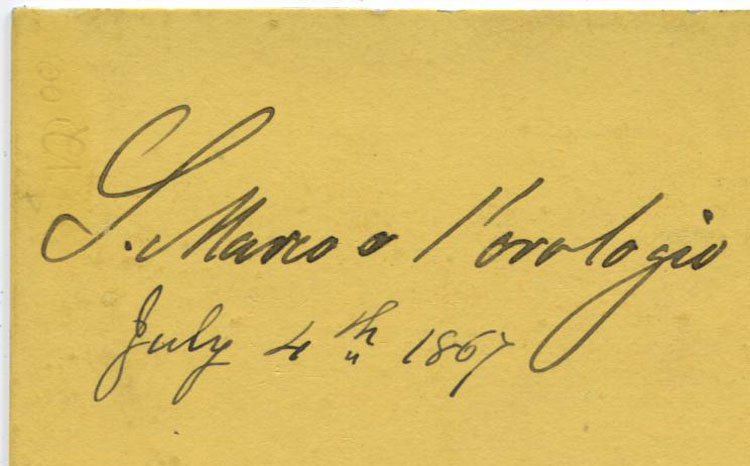 S. Marco e l'orologio
July 4th 1867